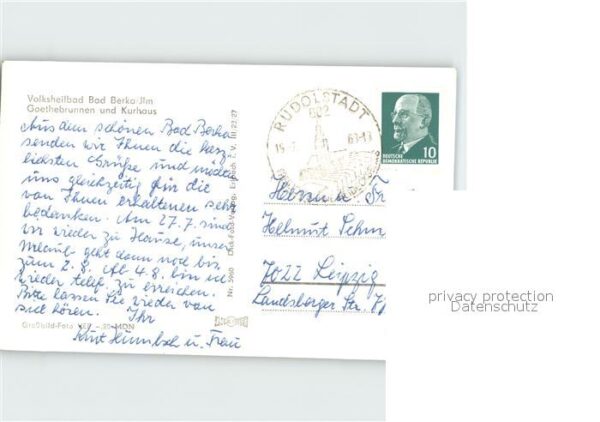 Volksheilbad Bad Berka/Ilm
Goethebrunnen und Kurhaus
Aus dem schönen Bad Berka
senden wir Ihnen die herz-
lichsten Grüße und möchten
uns gleichzeitig für die
von Ihnen erhaltenen sehr
bedanken. Am 27.7. sind
wir wieder zu Hause, unser
Urlaub geht dann noch bis
zum 2.8. Ab 4.8. bin ich
wieder telef. zu erreichen.
Bitte lassen Sie wieder von
sich hören. Ihr
Kurt u. Frau
Großbild-Foto VEB -,20 MDN
Nr. 5960 Click-Foto-Verlag III 22/27
RUDOLSTADT
802
DEUTSCHE
DEMOKRATISCHE REPUBLIK
10
Herrn u. Fr
Helmut Schm
7022 Leipzig
Landsberger Str.
privacy protection
Datenschutz